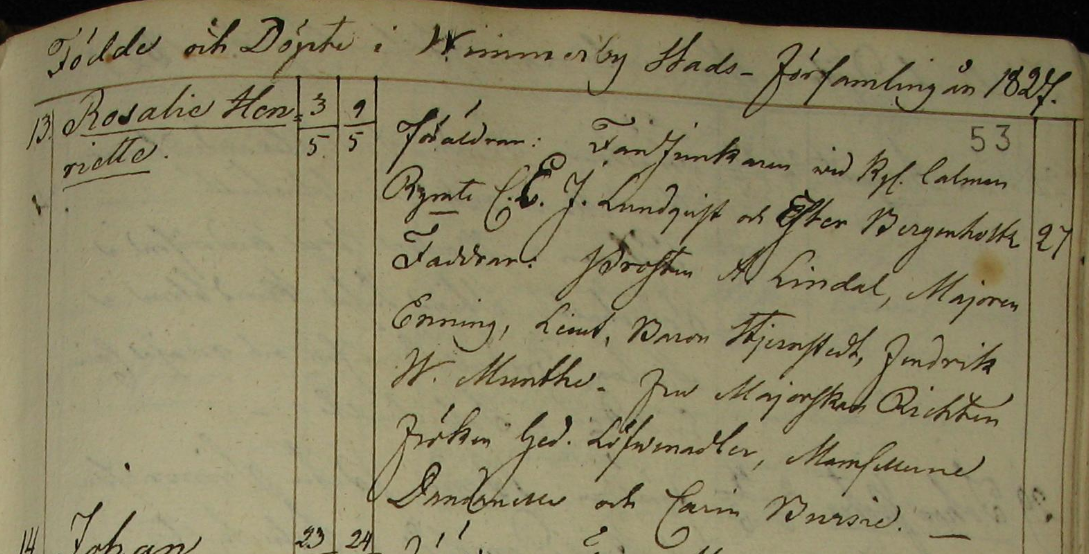 Födde och Döpte i Wimmerby Stads-Församling år 1827.
53
13. Rosalie Hen= 3/5 9/5
riette.
Föräldrar: Fanjunkaren vid Kgl. Calmar
Rgmte C. E. J. Lundqvist och Ester Bergenholtz 27
Faddrar: Prosten A. Lindal, Majoren
Enning, Lieut, Baron Stjernstedt, Fendrik
W. Munthe. Fru Majorskan Richten
Fröken Hed. Löfwenadler, Mamsellerne
och Carin Bursie.
14 Johan 23 24